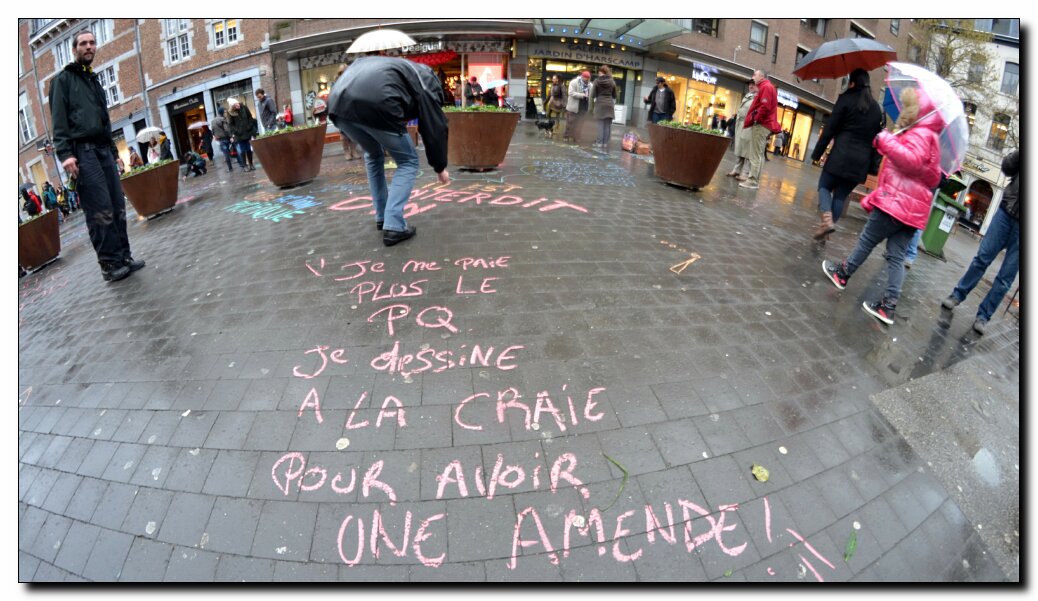 Desigual
JARDIN D'HARSCAMP
EST
INTERDIT
"Je me PAIE
PLUS LE
PQ
Je dessine
A LA CRAIE
POUR AVOIR
UNE AMENDE!